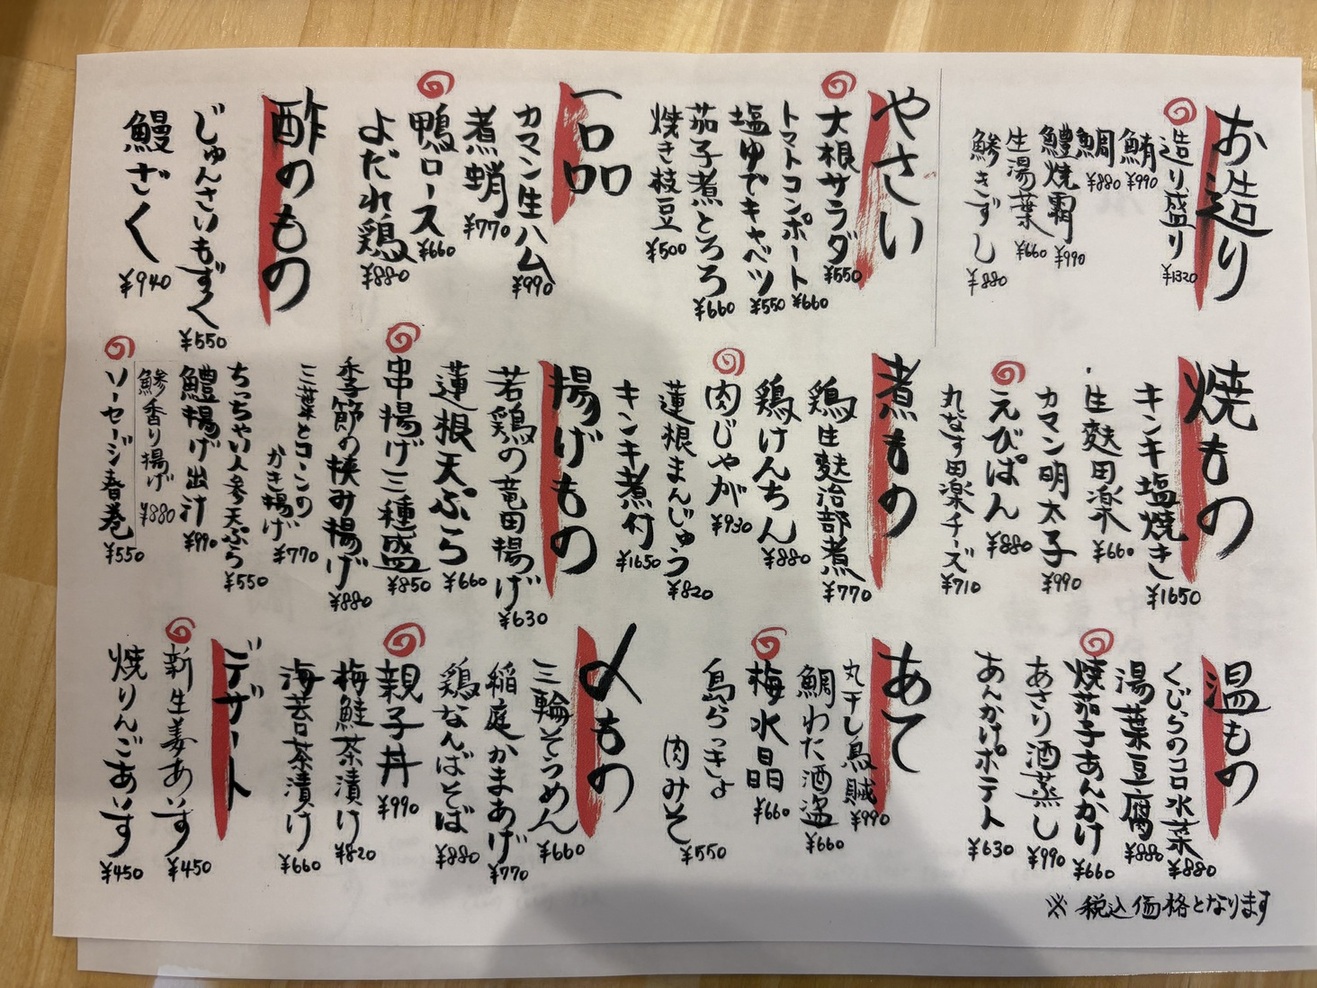 お造り
造り盛り ¥1320
鮪 ¥990
鯛 ¥880
鱧焼霜 ¥990
生湯葉 ¥660
鯵きずし ¥880
やさい
大根サラダ ¥550
トマトコンポート ¥660
塩ゆでキャベツ ¥550
茄子煮とろろ ¥660
焼き枝豆 ¥500
一品
カマン生ハム ¥990
煮蛸 ¥770
鴨ロース ¥660
よだれ鶏 ¥880
酢のもの
じゅんさいもずく ¥550
鰻ざく ¥940
焼もの
キンキ塩焼き ¥1650
生麩田楽 ¥660
カマン明太子 ¥990
えびぱん ¥880
丸なす田楽チーズ ¥710
煮もの
鶏生麩治部煮 ¥770
鶏けんちん ¥880
肉じゃが ¥930
蓮根まんじゅう ¥820
キンキ煮付 ¥1650
揚げもの
若鶏の竜田揚げ ¥630
蓮根天ぷら ¥660
串揚げ三種盛 ¥850
季節の挟み揚げ ¥880
三葉とコーンの
かき揚げ ¥770
ちっちゃい人参天ぷら ¥550
鱧揚げ出汁 ¥990
鯵香り揚げ ¥880
ソーセージ春巻 ¥550
温もの
くじらのコロ水菜 ¥880
湯葉豆腐 ¥880
焼茄子あんかけ ¥660
あさり酒蒸し ¥990
あんかけポテト ¥630
あて
丸干し烏賊 ¥990
鯛わた酒盗 ¥660
梅水晶 ¥660
島らっきょ
肉みそ ¥550
〆もの
三輪そうめん ¥660
稲庭かまあげ ¥770
鶏なんばそば ¥880
親子丼 ¥990
梅鮭茶漬け ¥820
海苔茶漬け ¥660
デザート
新生姜あいす ¥450
焼りんごあいす ¥450
※ 税込価格となります